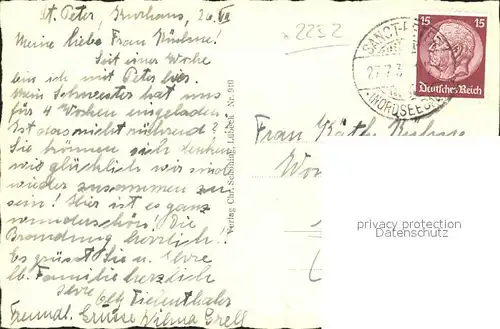 St. Peter, Kurhaus, 26.VII
Meine liebe Frau Kühne!
Seit einer Woche
bin ich mit Peter hier.
Mein Schwester hat uns
für 4 Wochen eingeladen.
Ist das nicht rührend?
Sie können sich denken
wie glücklich wir sind
wieder zusammen zu
sein! Hier ist es ganz
wunderschön! Die
Brandung herrlich!
Es grüsst Sie u. Ihre
lb. Familie herzlich
Ihre Elly Tiedenthaler
Freundl. Grüsse Wilma Grell
Verlag Chr. Schöning, Lübeck Nr. 910
2252
SANCT-PETER
27.7.3
(NORDSEEBAD)
15 15
Deutsches Reich
Frau Käthe
privacy protection
Datenschutz